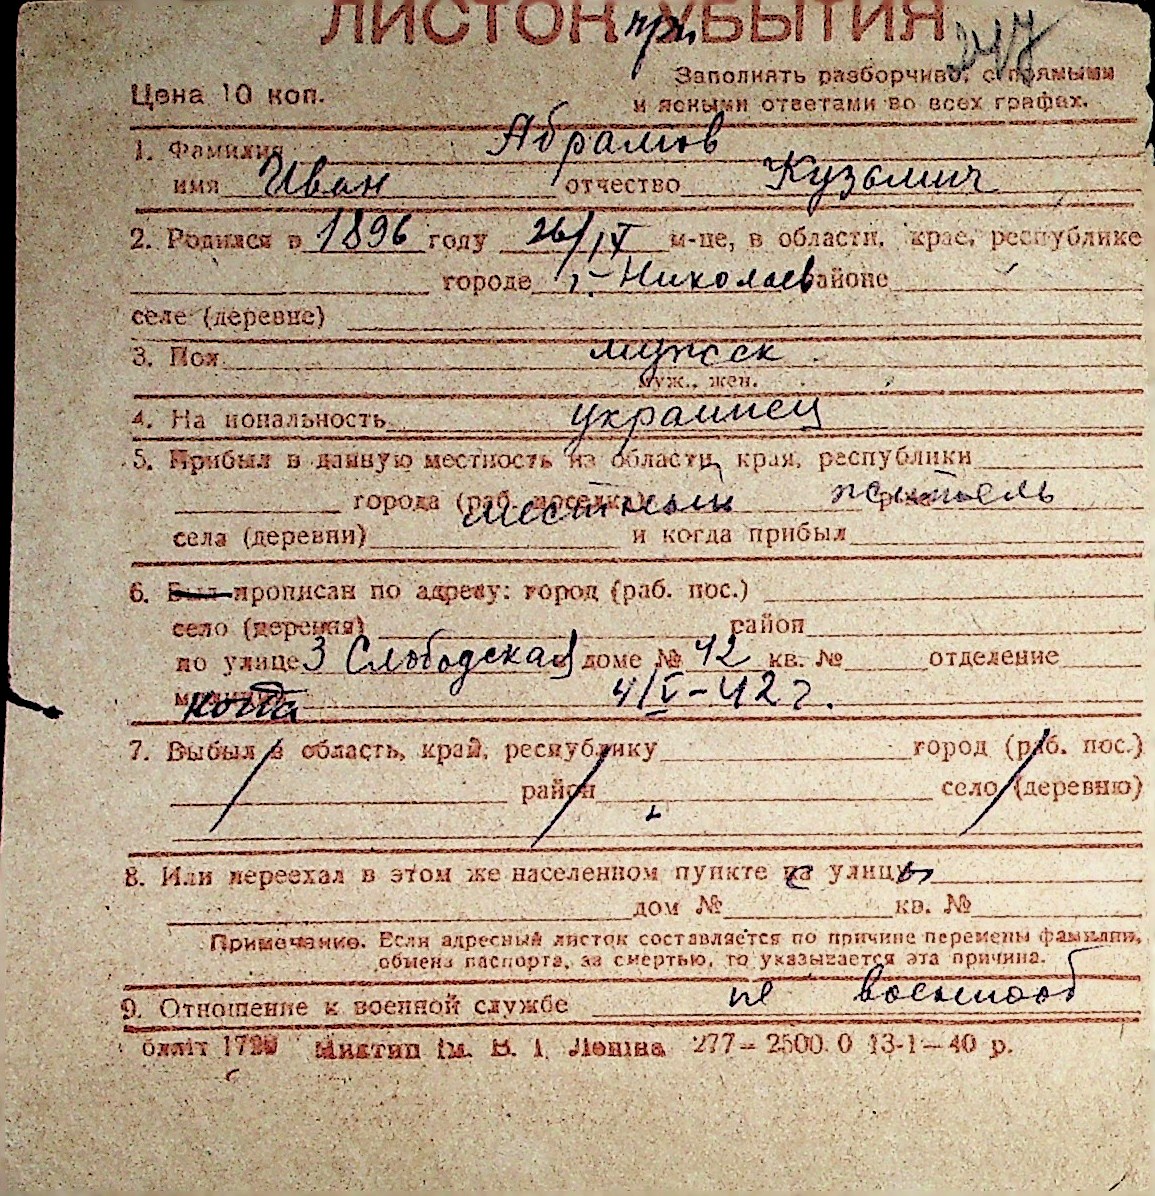 ЛИСТОК при УБЫТИЯ 247
Цена 10 коп.
Заполнять разборчиво, с прямыми
и ясными ответами во всех графах.
1. Фамилия Абрамов
имя Иван отчество Кузьмич
2. Родился в 1896 году 26/IX м-це, в области, крае, республике
городе г. Николаев районе
селе (деревне)
3. Пол мужск
муж., жен.
4. Национальность украинец
5. Прибыл в данную местность из области, края, республики
города (раб. поселка) местный житель
села (деревни) и когда прибыл
6. Был прописан по адресу: город (раб. пос.)
село (деревня) район
по улице 3 Слободская в доме № 42 кв. № отделение
когда 4/V-42 г.
7. Выбыл в область, край, республику город (раб. пос.)
район село (деревню)
8. Или переехал в этом же населенном пункте с улицы
дом № кв. №
Примечание. Если адресный листок составляется по причине перемены фамилии,
обмена паспорта, за смертью, то указывается эта причина.
9. Отношение к военной службе не военнооб
Міктип ім. В. І. Леніна 277 — 2500.0 13-1—40 р.